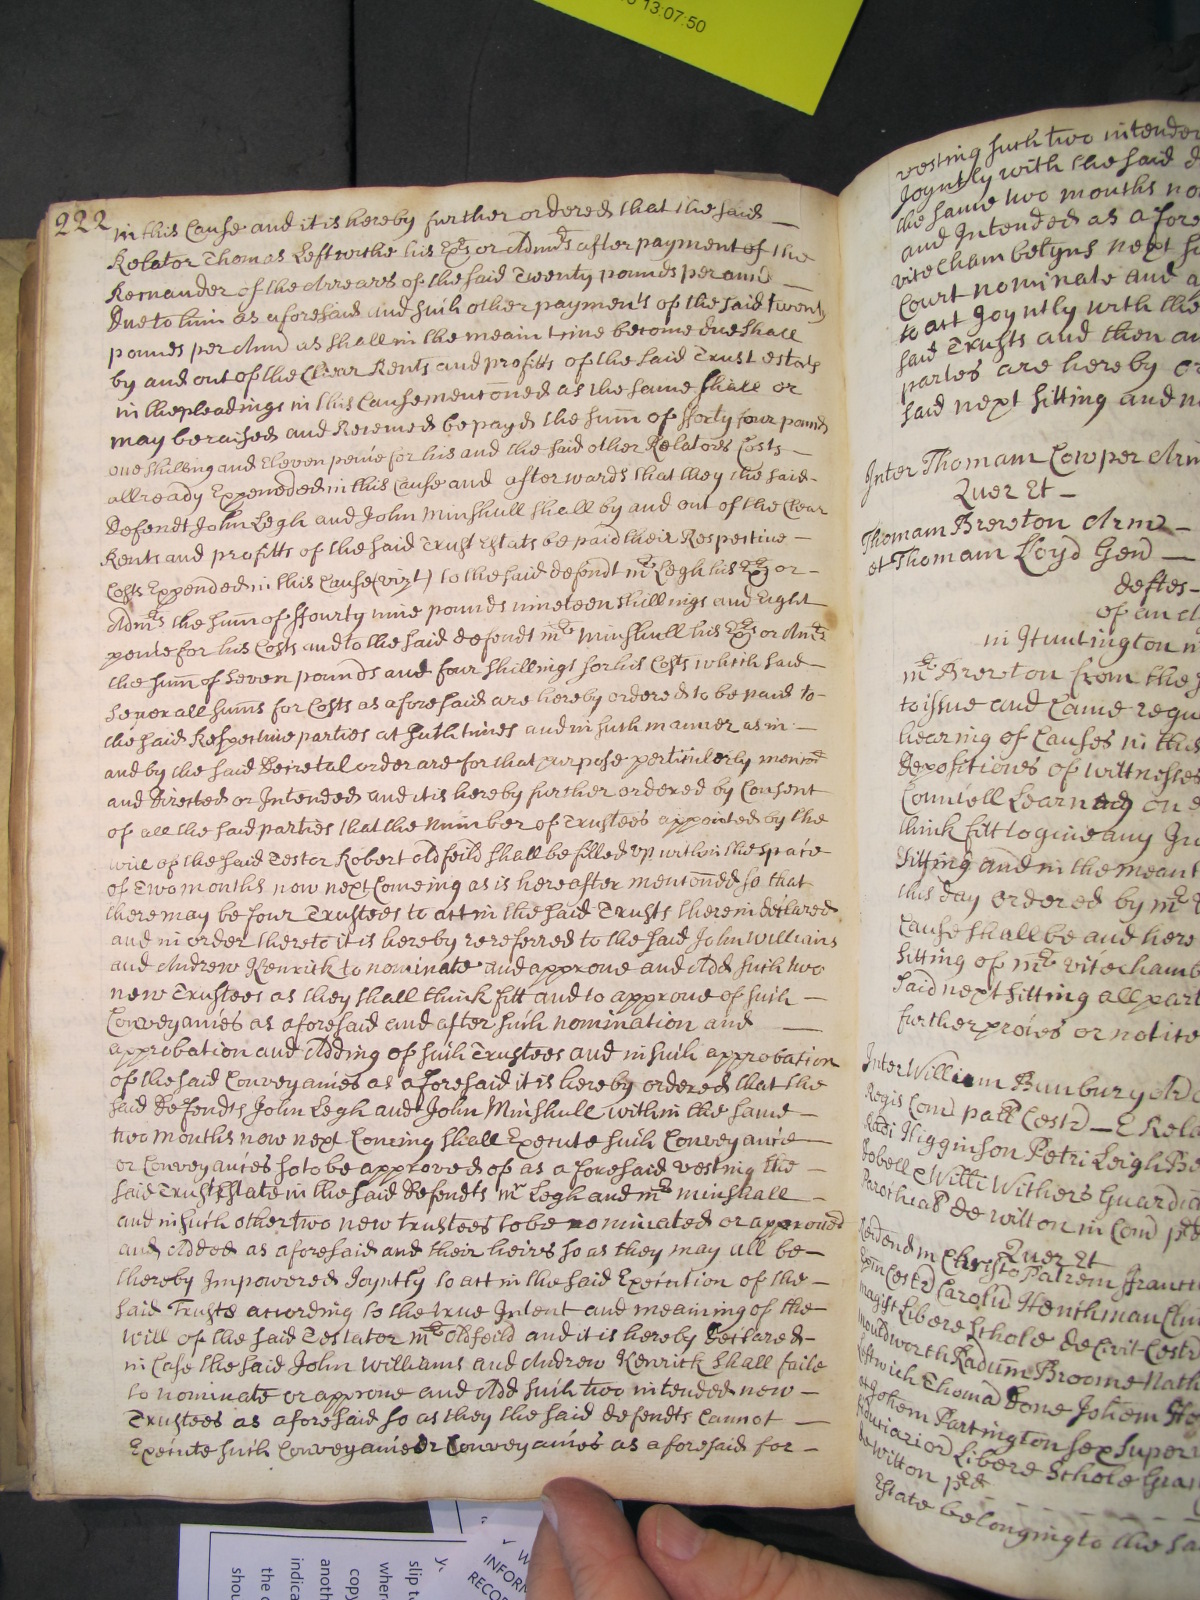 13:07:50
222
in this Cause and it is hereby further ordered that the said
Relator Thomas Leftwiche his Exrs or Admrs after payment of the
Remainder of the Arrears of the said Twenty pounds per annu
Due to him as aforesaid and such other payments of the said twenty
pounds per Annu as shall in the mean time become due shall
by and out of the Clear Rents and profitts of the said Trust estate
in the pleadings in this Cause mentoned as the same shall or
may be raised and Received be payd the sum of fforty four pounds
one shilling and Eleven pence for his and the said other Relators Costs
allready Expended in this Cause and afterwards that they the said
Defendt John Legh and John Minshull shall by and out of the Clear
Rents and profitts of the said Trust Estate be paid their Respective
Costs Expended in this Cause (vizt) to the said defendt mr Legh his Exrs or
Admrs the sum of ffourty nine pounds nineteen shillings and Eight
pence for his Costs and to the said defendt mr Minshull his Exrs or Admrs
the sum of seven pounds and four shillings for his Costs which said
severall sums for Costs as aforesaid are hereby ordered to be paid to
the said Respective parties at such times and in such manner as in
and by the said Decretal order are for that purpose perticulerly menconed
and Directed or Intended and it is hereby further ordered by Consent
of all the said parties that the Number of Trustees appointed by the
will of the said Testor Robert oldfeild shall be filled up within the space
of Two months now next Comeing as is hereafter mentoned so that
there may be four Trustees to act in the said Trusts therein declared
and in order thereto it is hereby rereferred to the said John Williams
and Andrew Kenrick to nominate and approve and Add such two
new Trustees as they shall think fitt and to approve of such
Conveyances as aforesaid and after such nomination and
approbation and Adding of such Trustees and in such approbation
of the said Conveyances as aforesaid it is hereby ordered that the
said Defendts John Legh and John Minshull within the same
two months now next Coming shall Execute such Conveyance
or Conveyances so to be approved of as aforesaid vesting the
said Trust Estate in the said Defendts mr Legh and mr minshall
and in such other two new trustees to be nominated or approved
and Added as aforesaid and their heires so as they may all be
thereby Impowered Joyntly to act in the said Execution of the
said Trusts according to the true Intent and meaning of the
will of the said Testator mr oldfeild and it is hereby Declared
in Case the said John Williams and Andrew Kenrick shall faile
to nominate or approve and Add such two intended new
Trustees as aforesaid so as they the said defendts Cannot
Execute such Conveyance or Conveyances as aforesaid for
vesting such two intended
Joyntly with the said
the same two months no
and Intended as afore
vitechamberlyns next
Court nominate and
to act Joyntly with the
said Trusts and then
parties are hereby
said next sitting and
Inter Thomam Cowper Arm
Quer Et
Thomam Brereton Arm
et Thomam Lloyd Gen
deftes
of an
in Huntington
mr Brereton from the
to issue and Came
hearing of Causes in this
depositions of wittnesses
Councell Learned on
think fitt to give any
sitting and in the meant
this day ordered by mr
Cause shall be and here
sitting of mr vitechamb
said next sitting all part
further proces or notice
Inter William Bunbury
Regis Com pall Cestr
Higginson Petri Leigh
Guardia
de witton in Com
Quer Et
Christo Patrem
Carolu Henthman
Libere Schole de Civit Cestr
Radum Broome Nath
Leftwich Thoma Done Johem
et Johem Partington sex super
Libere Schole
de Witton
Estate belonging to the
INFORM
RECO
slip
wher
copy
anoth
indica
the
shou